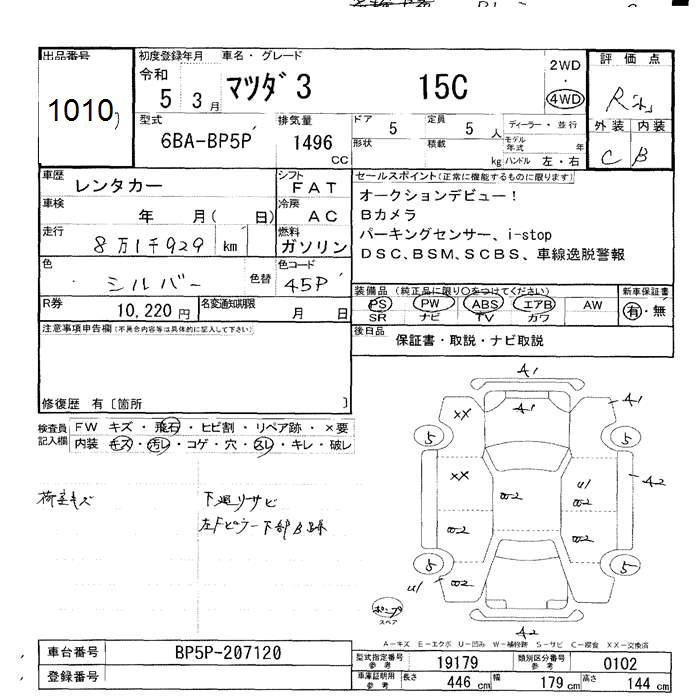 出品番号
1010
初度登録年月 車名・グレード
令和
5 3月 マツダ3 15C
2WD
・
4WD
評価点
外装 内装
C B
型式
6BA-BP5P
排気量
1496
cc
ドア 5
形状
定員 5 人
積載 kg
ディーラー・並行
モデル年式 年
ハンドル 左・右
車歴
レンタカー
車検
年 月( 日)
走行
8万1千929 km
シフト
FAT
冷房
AC
燃料
ガソリン
セールスポイント(正常に機能するものに限ります)
オークションデビュー!
Bカメラ
パーキングセンサー、i-stop
DSC、BSM、SCBS、車線逸脱警報
色
シルバー 色替
色コード
45P
R券
10,220円
名変通知期限
月 日
装備品(純正品に限り○をつけてください)
PS PW ABS エアB AW
SR ナビ TV カワ
新車保証書
有・無
後日品
保証書・取説・ナビ取説
注意事項申告欄(不具合内容等は具体的に記入して下さい)
修復歴 有〔箇所 〕
検査員記入欄
FW キズ・飛石・ヒビ割・リペア跡・×要
内装 キズ・汚レ・コゲ・穴・スレ・キレ・破レ
荷室キズ
下廻りサビ
左Fピラー下部B
A1
A1
A1
XX
5
5
XX
W2
U1
W2
A2
W2
W2
5
5
U1
W2
A2
ポンプ
スペア
A-キズ E-エクボ U-凹み W-補修跡 S-サビ C-腐食 XX-交換済
車台番号 BP5P-207120
登録番号
型式指定番号 参考 19179
類別区分番号 参考 0102
車庫証明用 参考 長さ 446 cm 幅 179 cm 高さ 144 cm